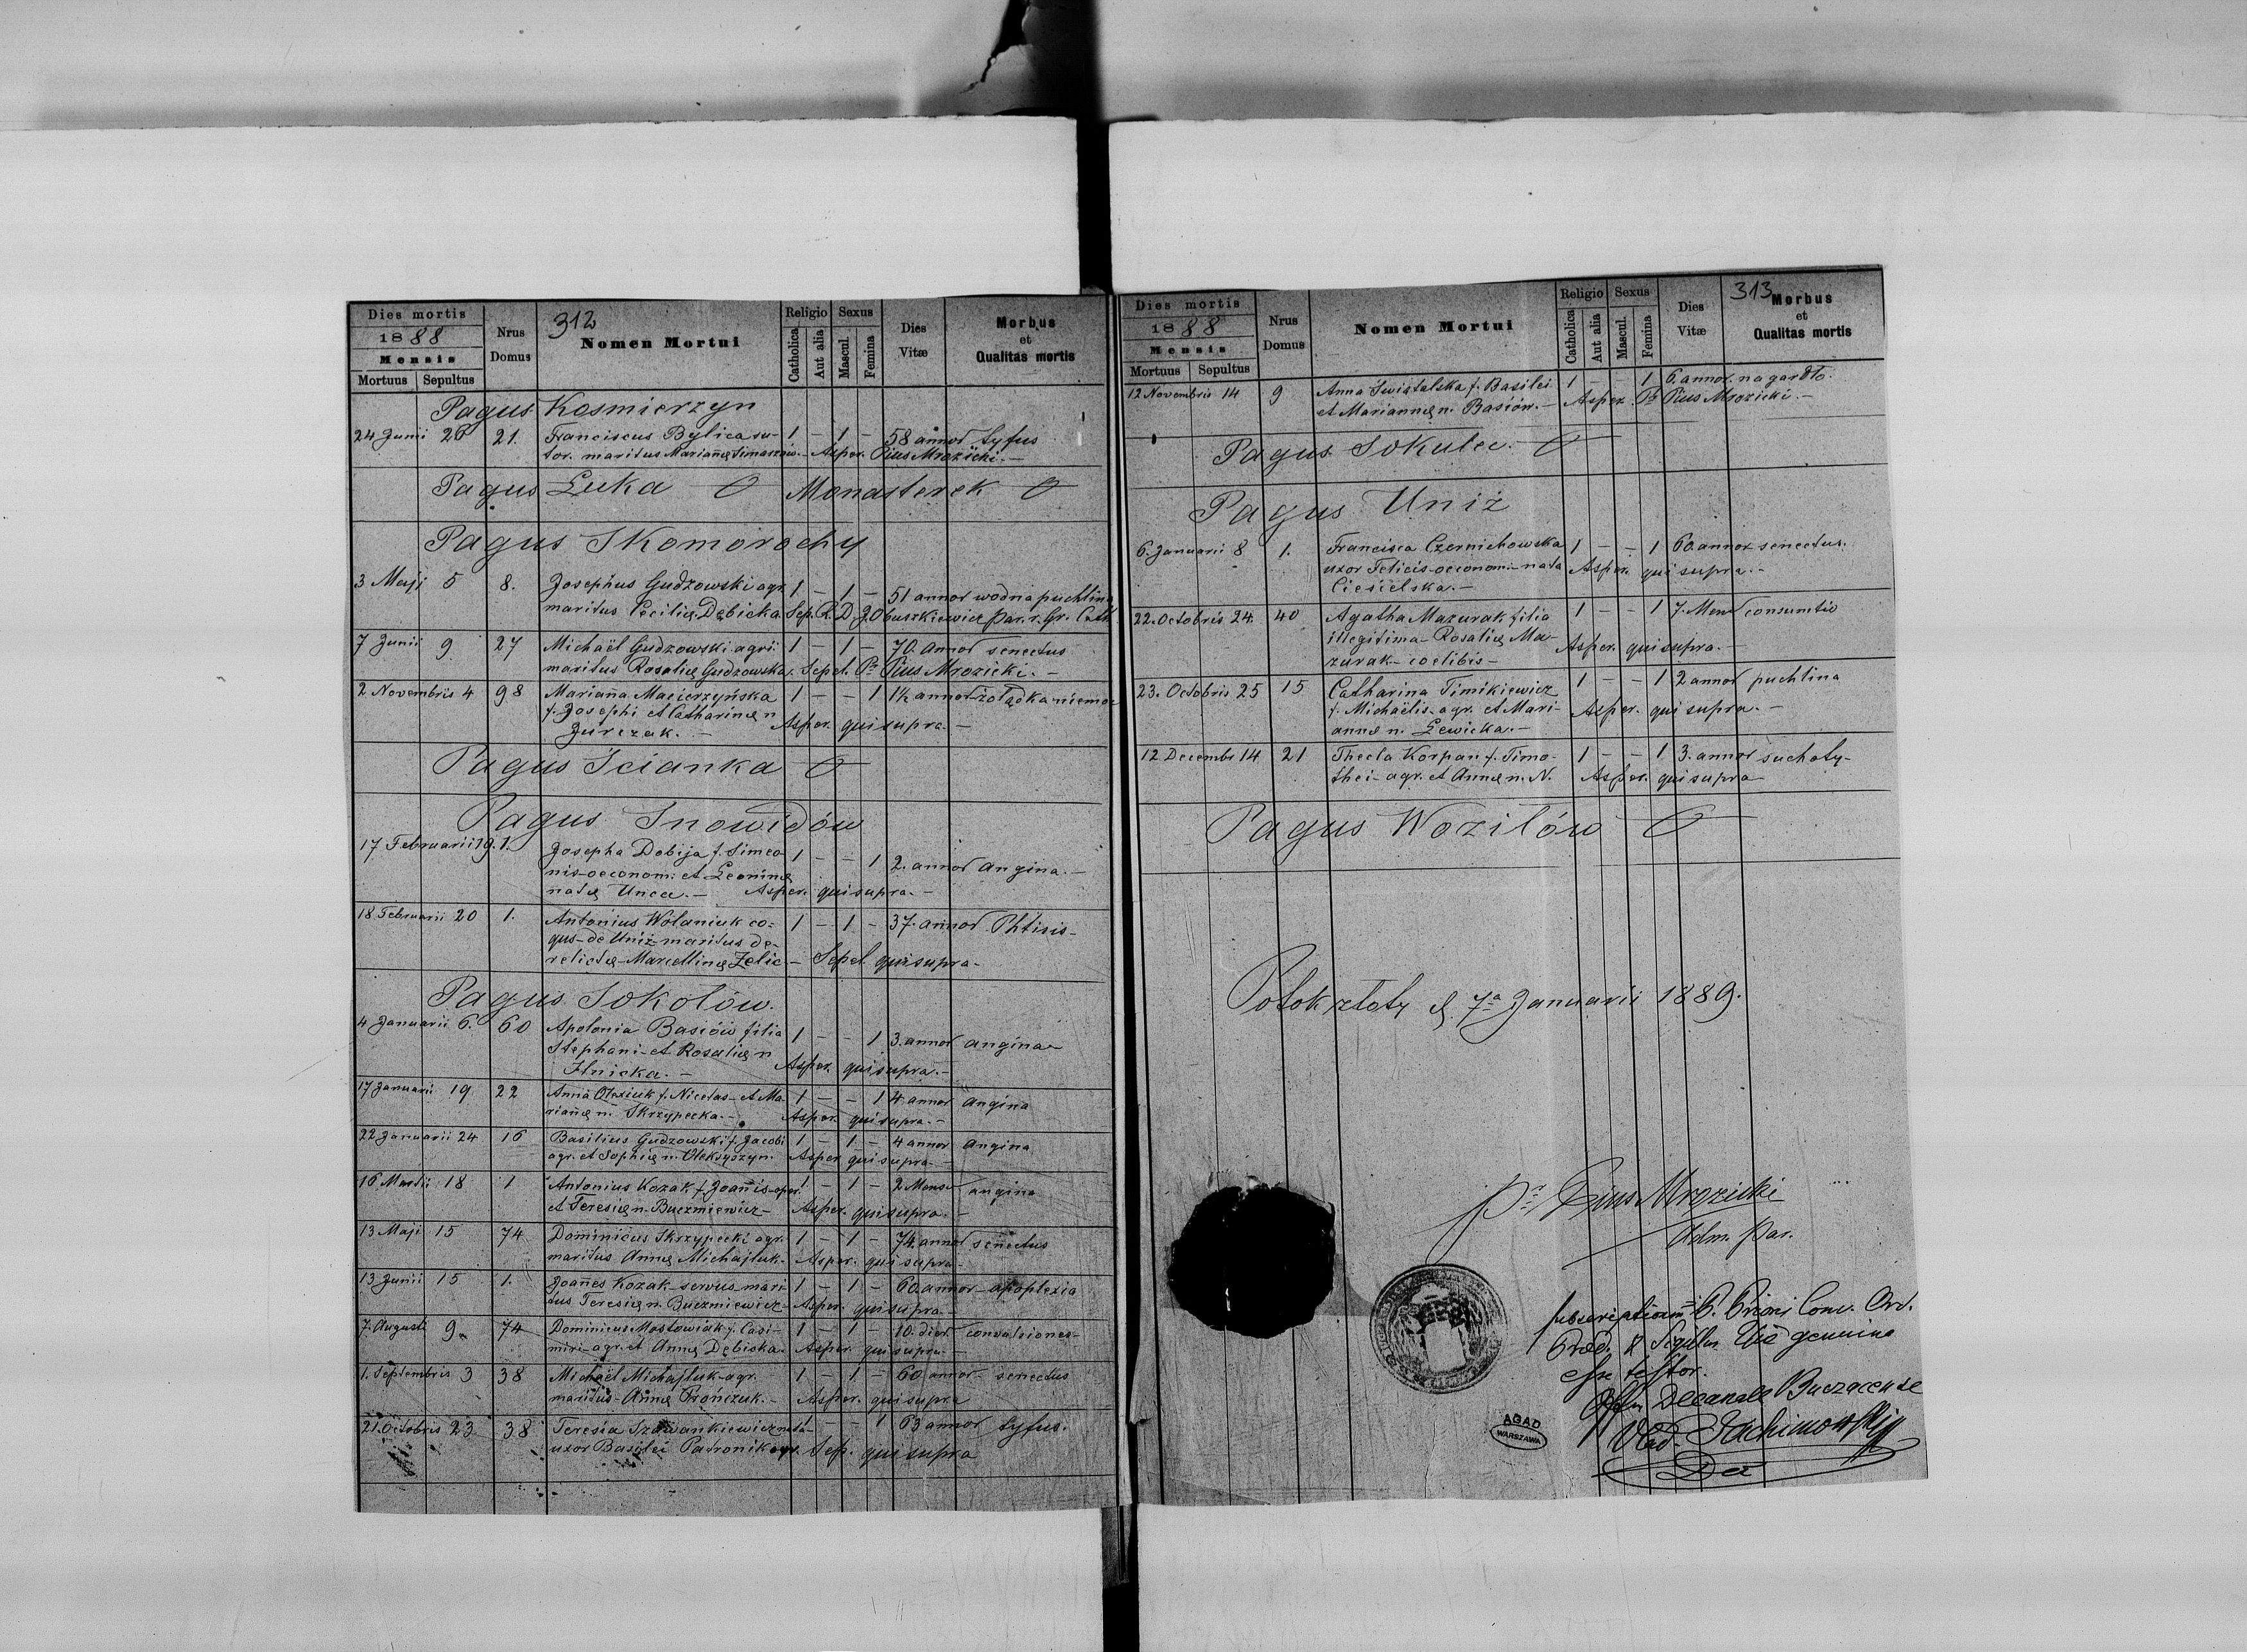 312
Dies mortis
1888
Mensis
Mortuus Sepultus
Nrus Domus
Nomen Mortui
Religio
Catholica
Aut alia
Sexus
Mascul.
Femina
Dies Vitæ
Morbus et Qualitas mortis
Pagus Kosmierzyn
24 Junii 26 21. Franciscus Bylica su- 1 - 1 - 58 annor tyfus
tor. maritus Mariannæ Timaszów. - Asper. Pius Mrozicki. -
Pagus Łuka O Monasterek O
Pagus Skomorochy
3 Maji 5 8. Josephus Gudzowski agr. 1 - 1 - 51 annor wodna puchlina
maritus Ceciliæ Dębicka. Sep. R. D. J. Obuszkiewicz Par. r. Gr. Cath
7 Junii 9 27 Michaël Gudzowski agri. 1 - 1 - 70. annor senectus
maritus Rosaliæ Gudzowska. Sepel. Pr Pius Mrozicki. -
2. Novembris 4 98 Marianna Macierzyńska 1 - - 1 1½ annor żołądka niemoc
f. Josephi et Catharinæ n Asper. qui supra. -
Jurczak. -
Pagus Ścianka O
Pagus Snowidów
17 Februarii 19. 1. Josepha Dobija f. Simeo- 1 - - 1 2. annor angina. -
nis - oeconom: et Leoninæ
natæ Unca. - Asper. qui supra. -
18. Februarii 20 1. Antonius Wolaniuk co- 1 - 1 - 37. annor Phtisis -
qus - de Uniż maritus de-
relictæ - Marcellinæ Zelic. - Sepel. qui supra -
Pagus Sokołów.
4 Januarii 6. 60 Apolonia Basiów filia 1 - - 1 3. annor angina -
Stephani - et Rosaliæ n
Ilnicka. - Asper. qui supra. -
17 Januarii 19 22 Anna f. Nicolas - et Ma- 1 - - 1 4 annor angina
riannæ n. Skrzypecka. - Asper. qui supra. -
22 Januarii 24 16 Basilius Gudzowski f. Jacobi 1 - 1 - 4 annor angina
agr. et Sophiæ n. Oleksyszyn. Asper qui supra -
16 Martii 18 1 Antonius Kozak f. Joannis - oper. 1 - 1 - 2 Mens angina
et Teresiæ n. Buczmiewicz - Asper. qui supra. -
13 Maji 15 74 Dominicus Skrzypecki agr. 1 - 1 - 74. annor senectus
maritus Annæ Michajluk. - Asper. qui supra -
13 Junii 15 1. Joannes Kozak servus mari- 1 - 1 - 60. annor apoplexia
tus Teresiæ n. Buczmiewicz - Asper. qui supra. -
7. Augusti 9. 74 Dominicus Mostowiak f. Casi- 1 - 1 - 10. dier. convulsiones -
miri - agr. et Annæ Dębiska. Asper. qui supra. -
1. Septembris 3 38 Michaël Michajluk - agr. 1 - 1 - 60 annor senectus
maritus - Annæ Prończuk. - Asper. qui supra
21. Octobris 23 38 Teresia nata - - 1 63 annor tyfus.
uxor Basilei Patronik agr. Sep. qui supra
313
Dies mortis
1888
Mensis
Mortuus Sepultus
Nrus Domus
Nomen Mortui
Religio
Catholica
Aut alia
Sexus
Mascul.
Femina
Dies Vitæ
Morbus et Qualitas mortis
12 Novembris 14 9 Anna Swistalska f. Basilei 1 - - 1 6. annor. na gardło.
et Mariannæ n. Basiów. - Asper. Pr Pius Mrozicki. -
Pagus Sokulec. O
Pagus Uniż
6. Januarii 8 1. Francisca Czernichowska 1 - - 1 60. annor senectus.
uxor Felicis - oeconom: - nata Asper. qui supra. -
Ciesielska. -
22. Octobris 24. 40 Agatha Mazurak filia 1 - - 1 7. Mens consumtio
illegitima - Rosaliæ Ma- Asper. qui supra. -
zurak - coelibis -
23. Octobris 25 15 Catharina Timikiewicz 1 - - 1 2 annor puchlina
f. Michaëlis - agr. et Mari- Asper. qui supra. -
annæ n. Lewicka. -
12 Decembr 14 21 Thecla Korpan f. Timo- 1 - - 1 3. annor suchoty -
thei - agr. et Annæ n. N. Asper. qui supra
Pagus Woziłów O
Potok złoty d. 7a Januarii 1889.
Pr Pius Mrozicki
Adm. Par.
subscriptionem P. Prioris Conv. Ord.
Præd. & genuina
esse testor.
Decanale Buczacense
Vlad.
Dec
AGAD
WARSZAWA